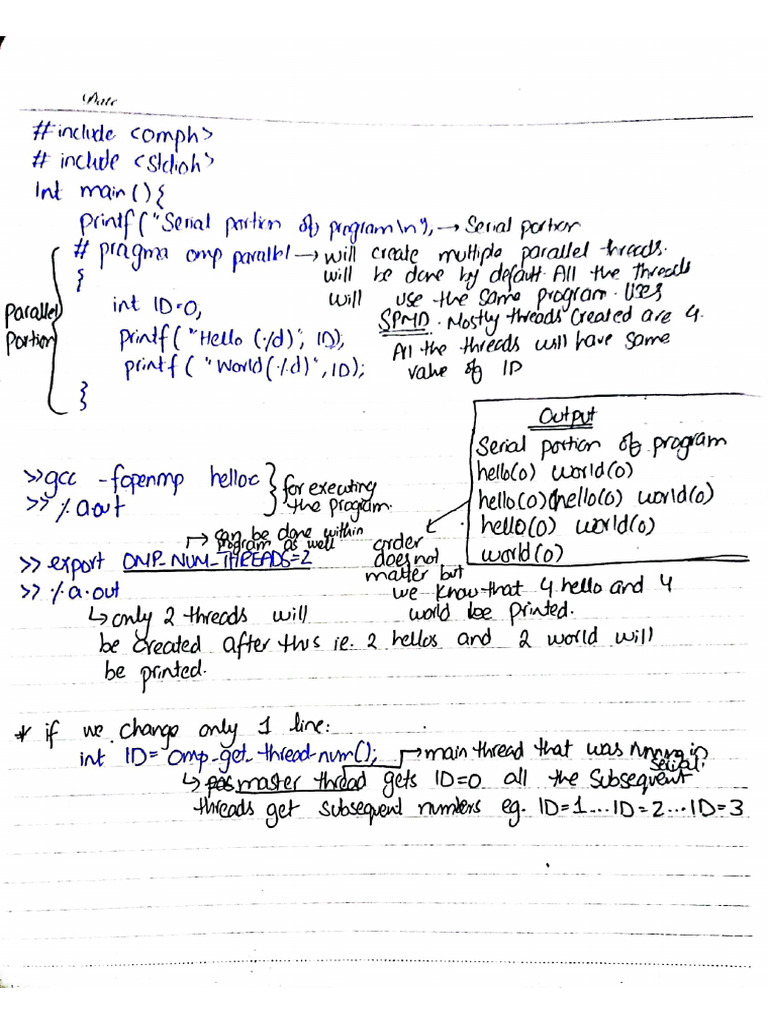 Date
#include <omph>
# include <stdioh>
Int main(){
printf("Serial portion of program\n"), → Serial portion
# pragma omp parallel → will create multiple parallel threads.
{ will be done by default. All the threads
int ID=0, will use the same program. Uses
Parallel Portion
SPMD. Mostly threads created are 4.
printf("Hello (%d)", ID);
All the threads will have same
printf ( "World(%d)", ID); value of ID
}
Output
Serial portion of program
hello(0) world(0)
hello(0)(hello(0) world(0)
hello(0) world(0)
world(0)
>>gcc -fopenmp helloc } for executing
>> ./.aout the program.
→ can be done within
program as well
>> export OMP_NUM_THREADS=2
>> ./.a.out
order
does not
matter but
we know that 4 hello and 4
world be printed.
↳ only 2 threads will
be created after this ie. 2 hellos and 2 world will
be printed.
* if we change only 1 line:
int ID= omp_get_thread_num(); → main thread that was running in
serial.
↳ master thread gets ID=0 all the subsequent
threads get subsequent numbers eg. ID=1...ID=2...ID=3